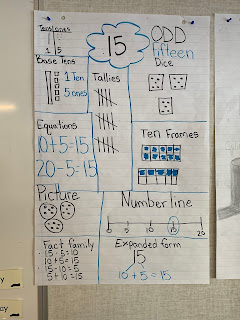 Tens|ones
1 5
15
ODD
fifteen
Base Tens
1 Ten
5 ones
Tallies
Dice
Equations
10+5=15
20-5=15
Ten Frames
Picture
Number line
0 5 10 15 20
Fact family
15-5=10
10+5=15
15-10=5
5+10=15
Expanded form
15
10 + 5 = 15